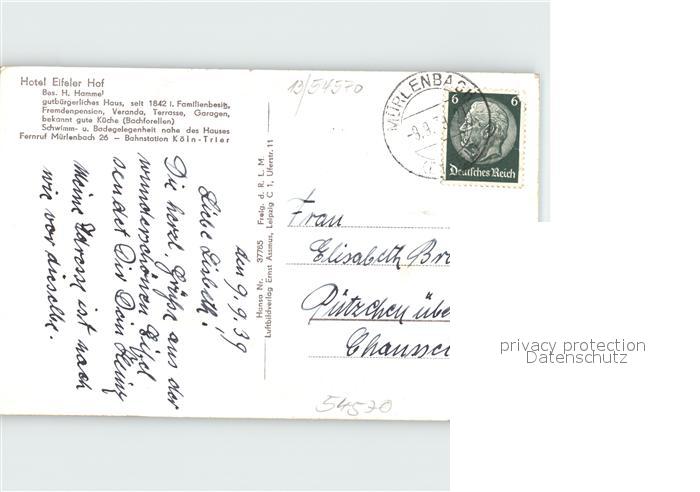 Hotel Eifeler Hof
Bes. H. Hammel
gutbürgerliches Haus, seit 1842 i. Familienbesitz,
Fremdenpension, Veranda, Terrasse, Garagen,
bekannt gute Küche (Bachforellen)
Schwimm- u. Badegelegenheit nahe des Hauses
Fernruf Mürlenbach 26 – Bahnstation Köln-Trier
den 9.9.39
Liebe Lisbeth!
Die herzl. Grüße aus der
wunderschönen Eifel
sendet Dir Dein Heinz
Meine Adresse ist nach
wie vor dieselbe.
Hansa Nr. 37785 Freig. d. R. L. M.
Luftbildverlag Ernst Assmus, Leipzig C 1, Uferstr. 11
13/54570
MÜRLENBACH
6 6
Deutsches Reich
Frau
Elisabeth Br
Pützchen übe
Chaussee
54570
privacy protection
Datenschutz